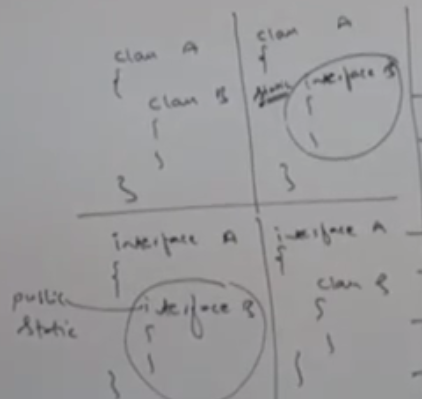 class A
{
class B
{
}
}
class A
{
static interface B
{
}
}
interface A
{
public
static
interface B
{
}
}
interface A
{
class B
{
}
}